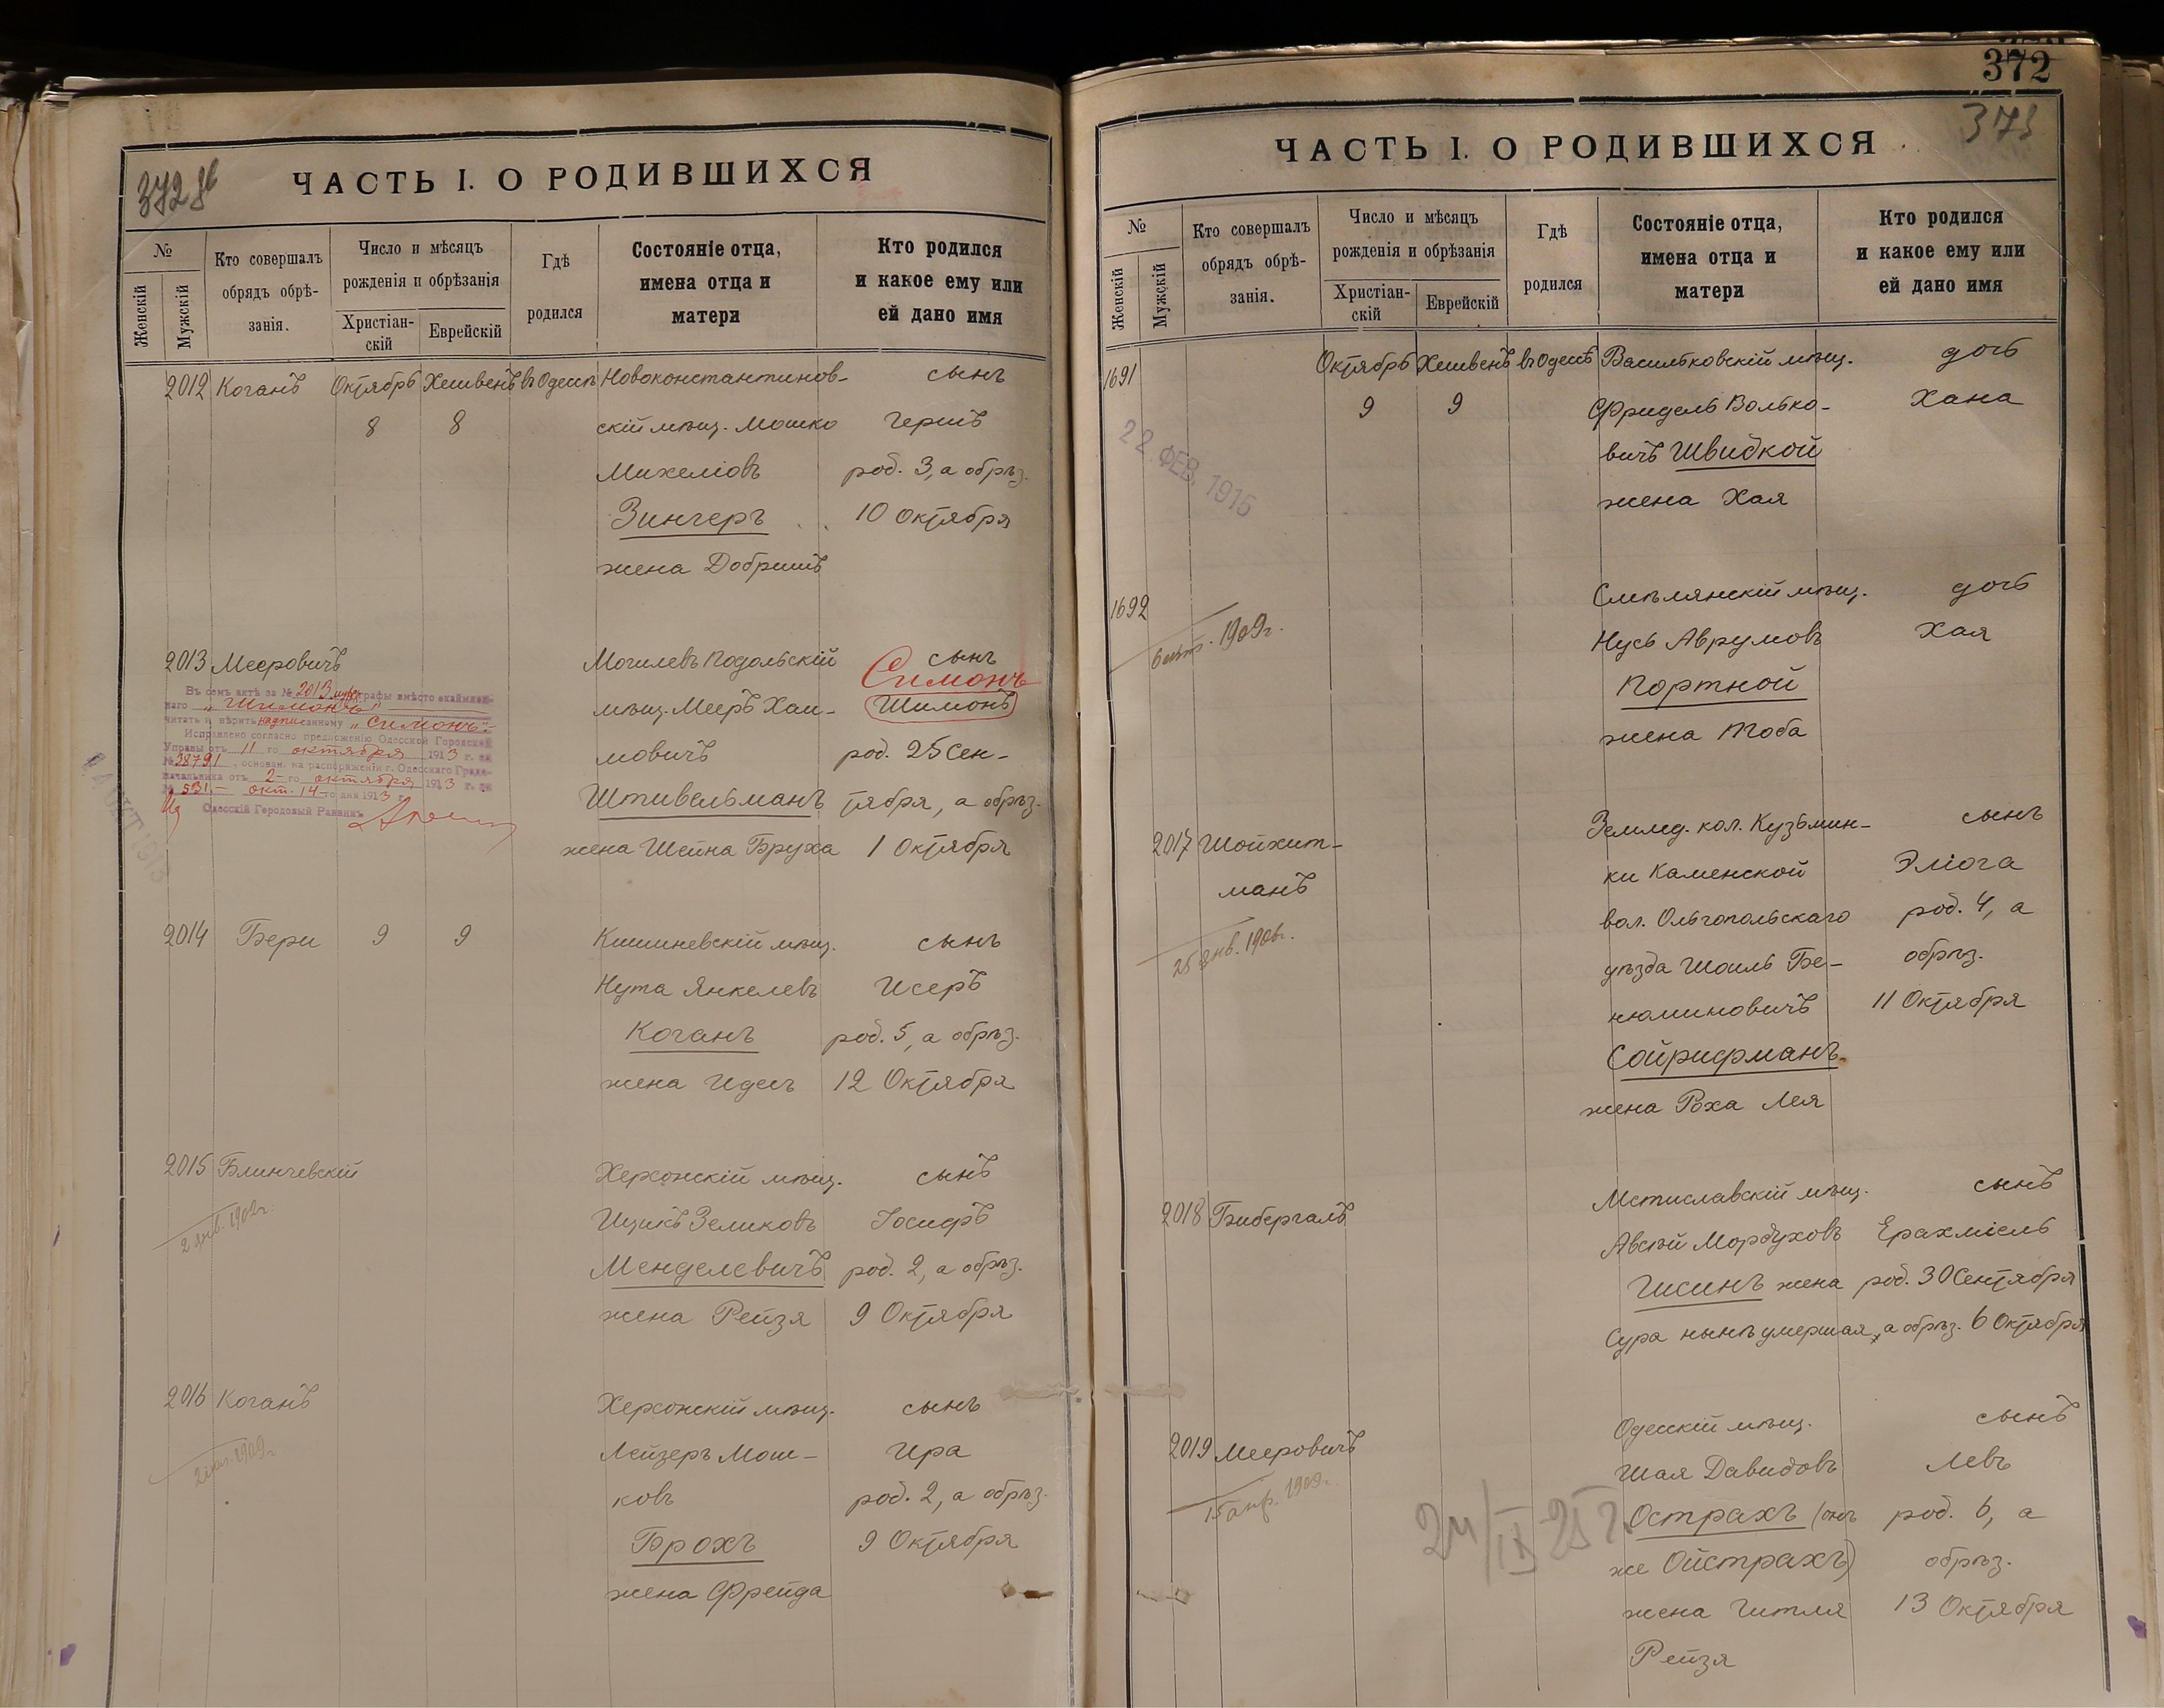 372 об
ЧАСТЬ I. О РОДИВШИХСЯ
№
Женскій
Мужскій
Кто совершалъ
обрядъ обрѣ-
занія.
Число и мѣсяцъ
рожденія и обрѣзанія
Христіан-
скій
Еврейскій
Гдѣ
родился
Состояніе отца,
имена отца и
матери
Кто родился
и какое ему или
ей дано имя
2012 Коганъ Октябрь Хешвенъ въ Одессѣ Новоконстантинов- сынъ
8 8 скій мѣщ. Мошко Гершъ
Михеліовъ род. 3, а обрѣз.
Зингеръ 10 Октября
жена Добришъ
2013 Мееровичъ Могилевъ Подольскій сынъ
Симонъ
мѣщ. Мееръ Хаи- Шимонъ
мовичъ род. 25 Сен-
Штивельманъ тября, а обрѣз.
жена Шейна Бруха 1 Октября
Въ семъ актѣ за № 2013 муж. графы вмѣсто
наго „Шимонъ"
читать и вѣрить надписанному „Симонъ".
Исправлено согласно предложенію Одесской Городской
Управы отъ 11 го октября 1913 г. за
№ 28791, основан. на распоряженіи г. Одесскаго Градо-
начальника отъ 2-го октября 1913 г. за
№ 531.- окт. 14-го дня 1913 г.
Одесскій Городовый Раввинъ
2014 Бери 9 9 Кишиневскій мѣщ. сынъ
Нута Янкелевъ Исеръ
Коганъ род. 5, а обрѣз.
жена Идесъ 12 Октября
2015 Блинчевскій Херсонскій мѣщ. сынъ
2 янв. 1902г. Ицикъ Зеликовъ Іосифъ
Менделевичъ род. 2, а обрѣз.
жена Рейзя 9 Октября
2016 Коганъ Херсонскій мѣщ. сынъ
1909г. Лейзеръ Мош- Ира
ковъ род. 2, а обрѣз.
Брохъ 9 Октября
жена Фрейда
372
373
ЧАСТЬ I. О РОДИВШИХСЯ
№
Женскій
Мужскій
Кто совершалъ
обрядъ обрѣ-
занія.
Число и мѣсяцъ
рожденія и обрѣзанія
Христіан-
скій
Еврейскій
Гдѣ
родился
Состояніе отца,
имена отца и
матери
Кто родился
и какое ему или
ей дано имя
1691 Октябрь Хешвенъ въ Одессѣ Васильковскій мѣщ. дочь
9 9 Фридель Волько- Хана
22 ФЕВ. 1915
вичъ Швидкой
жена Хая
1692 Смѣлянскій мѣщ. дочь
1909г. Нусь Аврумовъ Хая
Портной
жена Тоба
2017 Шойхит- Землед. кол. Кузьмин- сынъ
манъ ки Каменской Эліога
25 янв. 1906г. вол. Ольгопольскаго род. 4, а
уѣзда Шоиль Бе- обрѣз.
нюминовичъ 11 Октября
Сойрифманъ
жена Роха Лея
2018 Бибергалъ Мстиславскій мѣщ. сынъ
Авсѣй Мордуховъ Ерахміель
Гисинъ жена род. 30 Сентября
Сура нынѣ умершая, а обрѣз. 6 Октября
2019 Мееровичъ Одесскій мѣщ. сынъ
15 апр. 1909г. Шая Давидовъ Левъ
24/IX 25 г. Острахъ (онъ род. 6, а
же Ойстрахъ) обрѣз.
жена Гитля 13 Октября
Рейзя